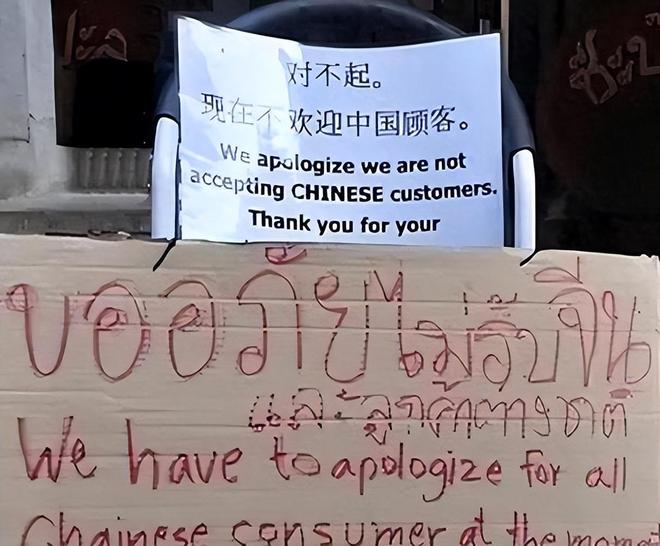 对不起。
现在不欢迎中国顾客。
We apologize we are not
accepting CHINESE customers.
Thank you for your
ขออภัยไม่รับจีน
และลูกค้าต่างชาติ
We have to apologize for all
Chainese consumer at the moment